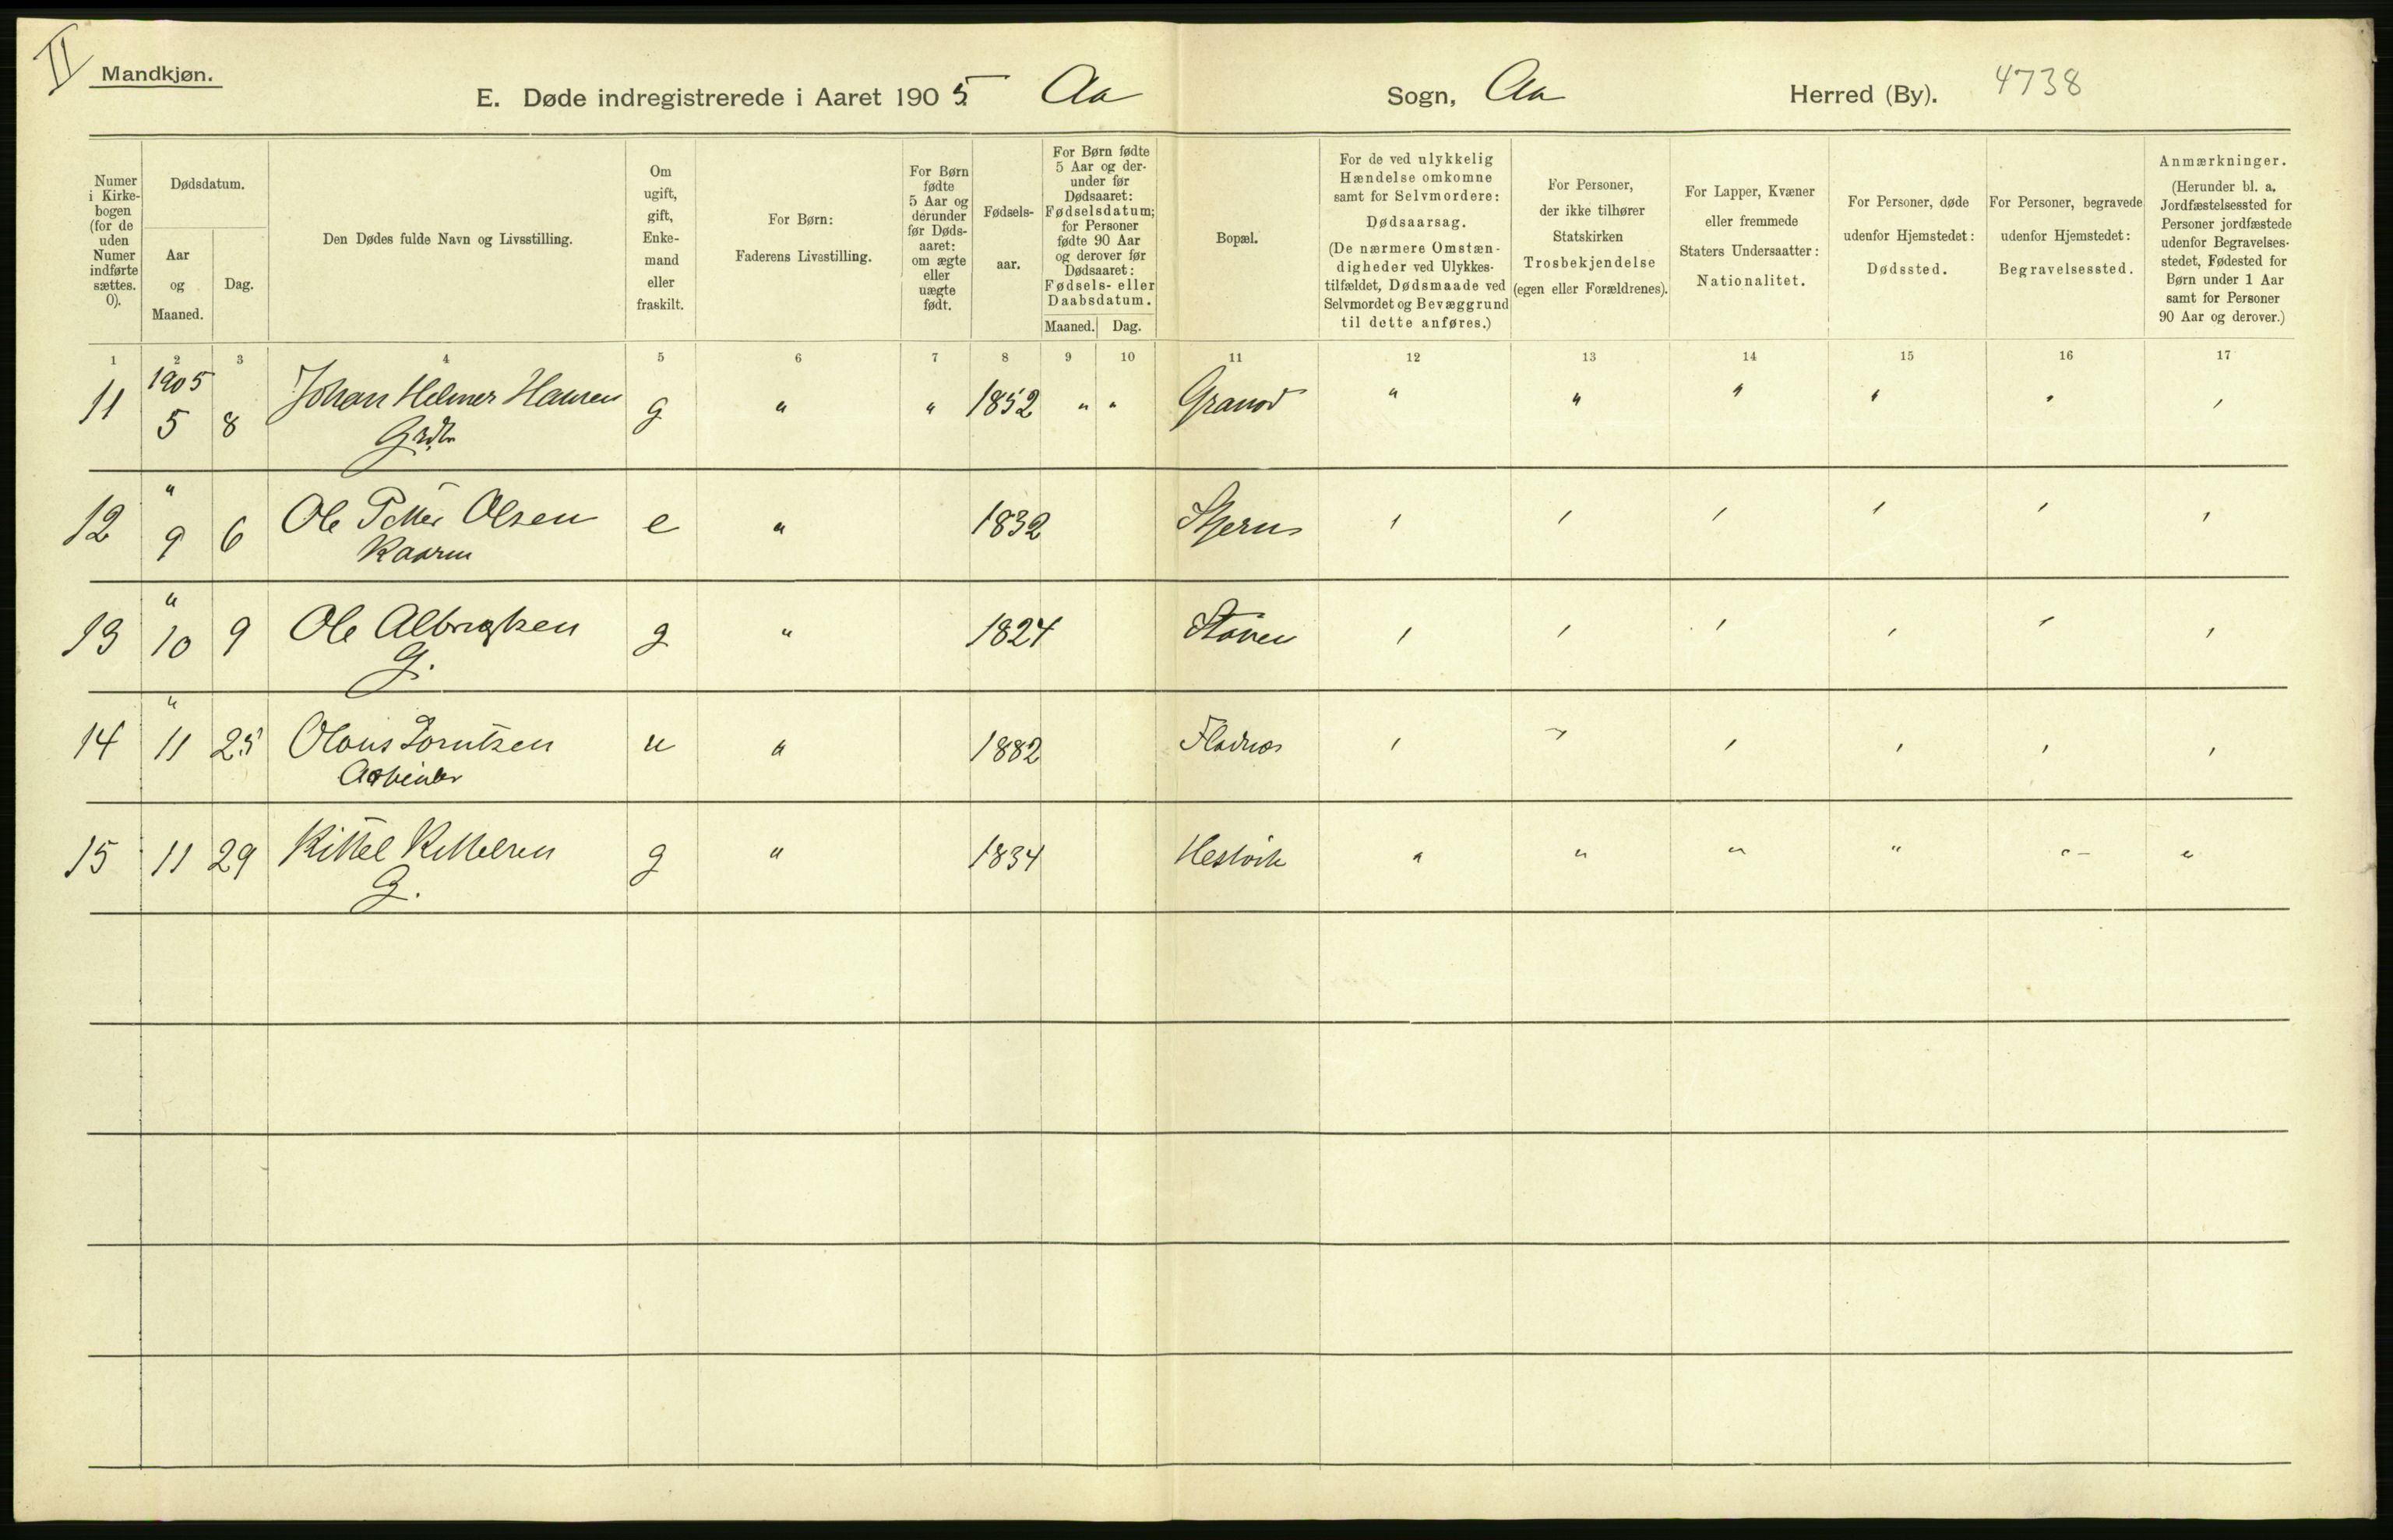 II
Mandkjøn.
E. Døde indregistrerede i Aaret 1905 Aa Sogn, Aa Herred (By). 4738
Numer i Kirkebogen (for de uden Numer indførte sættes. 0).
Dødsdatum.
Aar og Maaned.
Dag.
Den Dødes fulde Navn og Livsstilling.
Om ugift, gift, Enkemand eller fraskilt.
For Børn:
Faderens Livsstilling.
For Børn fødte 5 Aar og derunder før Dødsaaret: om ægte eller uægte født.
Fødselsaar.
For Børn fødte 5 Aar og derunder før Dødsaaret: Fødselsdatum; for Personer fødte 90 Aar og derover før Dødsaaret: Fødsels- eller Daabsdatum.
Maaned. Dag.
Bopæl.
For de ved ulykkelig Hændelse omkomne samt for Selvmordere:
Dødsaarsag.
(De nærmere Omstændigheder ved Ulykkestilfældet, Dødsmaade ved Selvmordet og Bevæggrund til dette anføres.)
For Personer, der ikke tilhører Statskirken
Trosbekjendelse
(egen eller Forældrenes).
For Lapper, Kvæner eller fremmede Staters Undersaatter:
Nationalitet.
For Personer, døde udenfor Hjemstedet:
Dødssted.
For Personer, begravede udenfor Hjemstedet:
Begravelsessted.
Anmærkninger.
(Herunder bl. a. Jordfæstelsessted for Personer jordfæstede udenfor Begravelsesstedet, Fødested for Børn under 1 Aar samt for Personer 90 Aar og derover.)
1 2 3 4 5 6 7 8 9 10 11 12 13 14 15 16 17
1905
11 5 8 Johan Helmer Hansen g " " 1852 " " " " " " " "
"
12 9 6 Ole Petter Olsen e " 1832
Kaarm
"
13 10 9 Ole Albrigtsen g " 1824 Støver
G.
"
14 11 25 Olaus Lorntzen u " 1882 Fladnes
Arbeider
15 11 29 Kittel Kittelsen g " 1834 Hestvik " " " " " "
G.